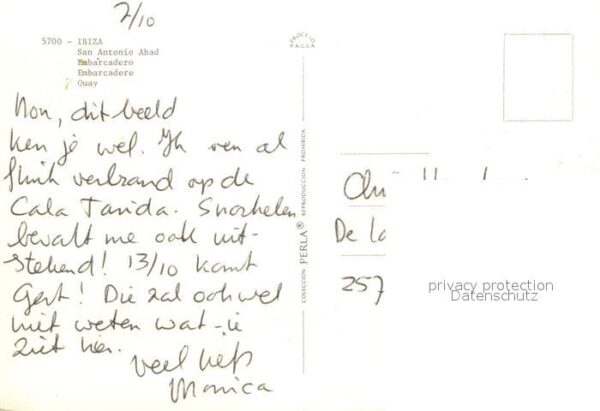 7/10
5700 - IBIZA
San Antonio Abad
Embarcadero
Embarcadere
Quay
PROCESO
P.A.C.S.A
Mon, dit beeld
ken je wel. Ik ben al
flink verbrand op de
Cala Tarida. Snorkelen
bevalt me ook uit-
stekend! 13/10 komt
Gert! Die zal ook wel
niet weten wat-ie
ziet hier.
Veel liefs
Monica
COLECCION PERLA® REPRODUCCION PROHIBIDA
De la
257
privacy protection
Datenschutz